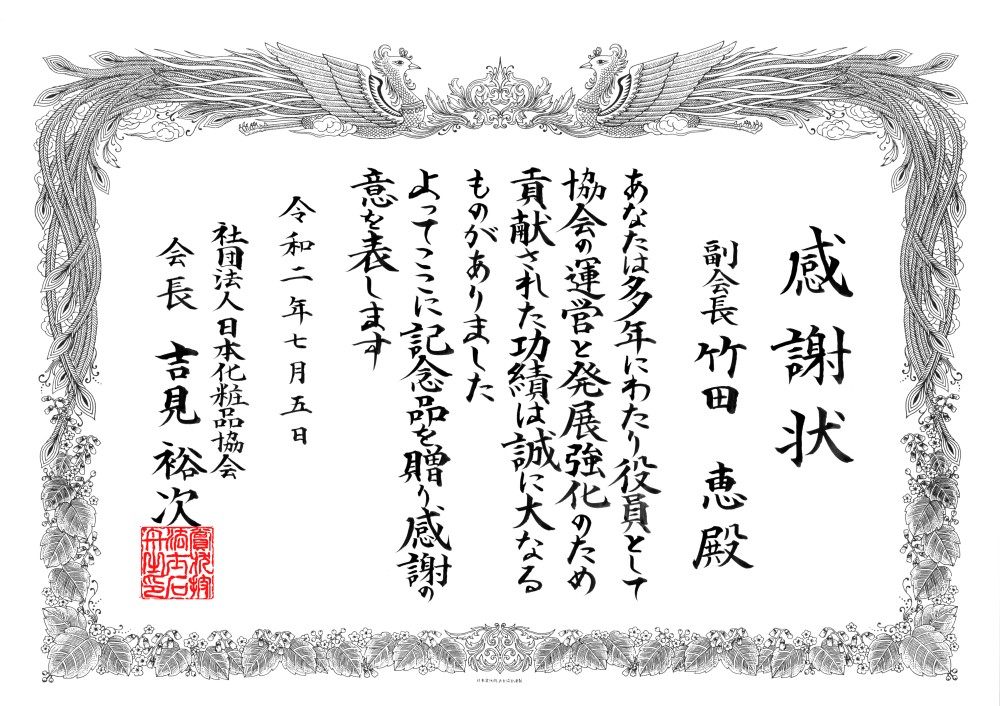 感謝状
副会長 竹田 恵殿
あなたは多年にわたり役員として
協会の運営と発展強化のため
貢献された功績は誠に大なる
ものがありました
よってここに記念品を贈り感謝の
意を表します
令和二年七月五日
社団法人日本化粧品協会
会長 吉見 裕次